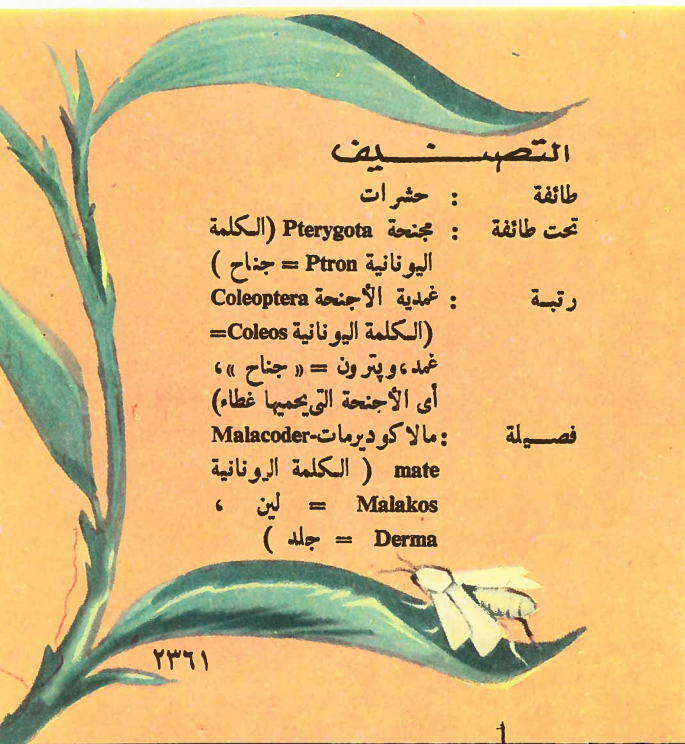 التصنيف
طائفة : حشرات
تحت طائفة : مجنحة Pterygota (الكلمة
اليونانية Ptron = جناح )
رتبة : غمدية الأجنحة Coleoptera
(الكلمة اليونانية Coleos=
غمد، وپترون = « جناح »،
أى الأجنحة التى يحميها غطاء)
فصيلة : مالاكوديرمات Malacoder-
mate ( الكلمة اليونانية
Malakos = لين ،
Derma = جلد )
٢٣٦١